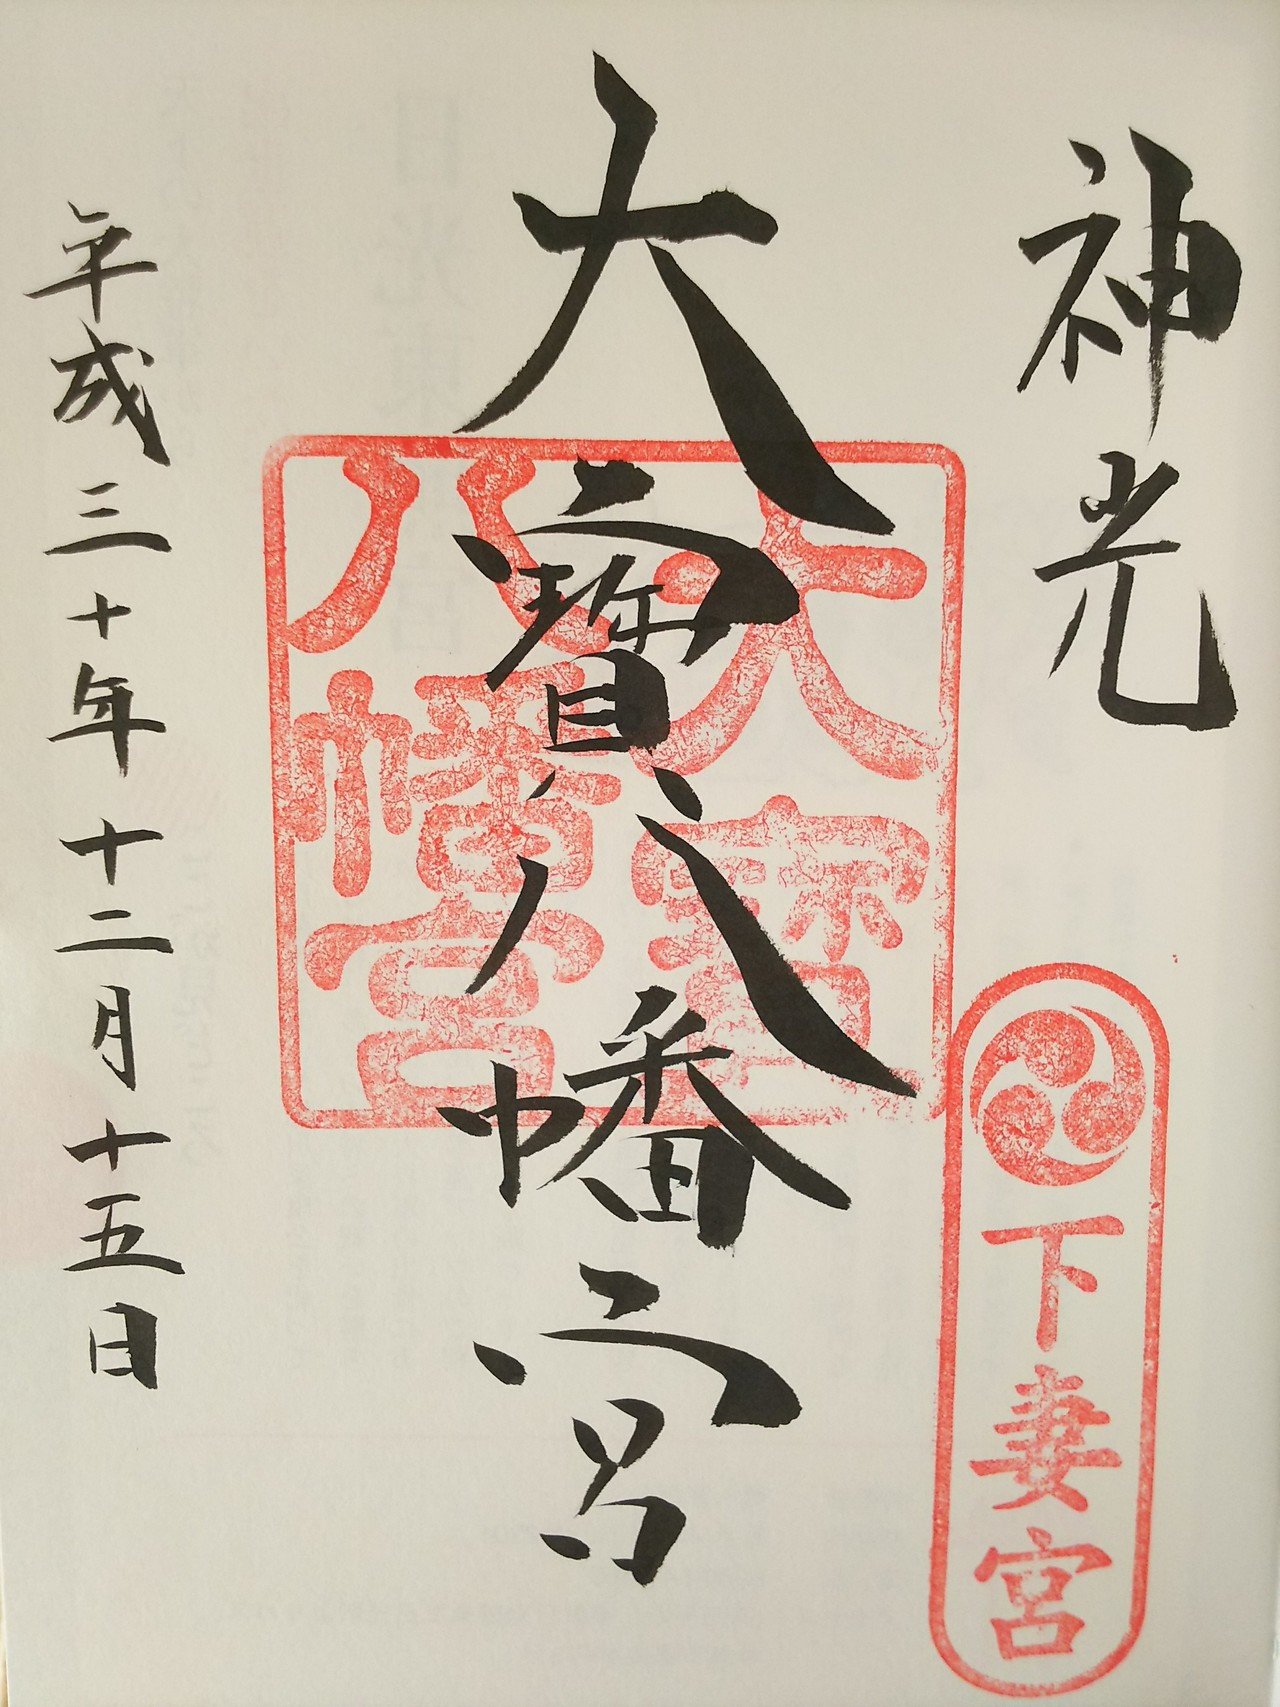 神光
大寳八幡宮
平成三十年十二月十五日
大寳
八幡宮
下妻宮